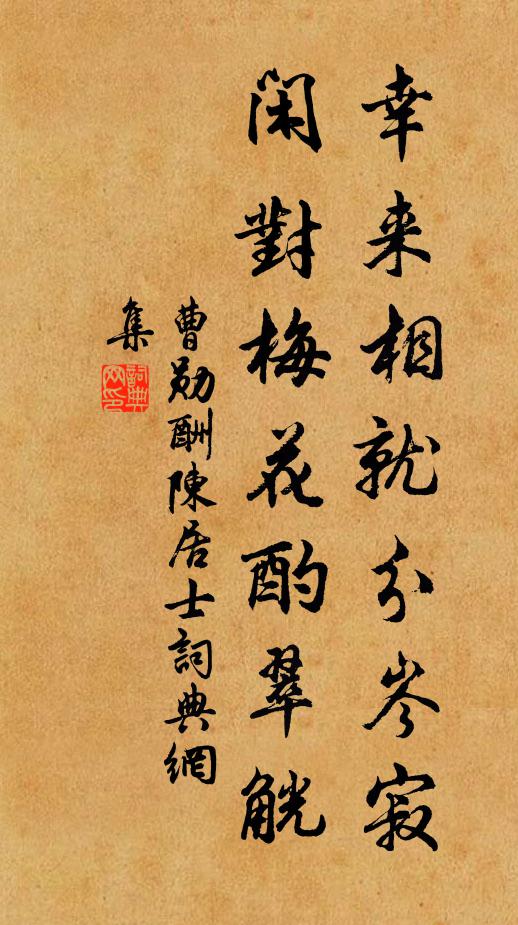 幸来相就分岑寂
闲對梅花酌翠觥
曹勛酬陳居士詞典網
集
詞典
网印